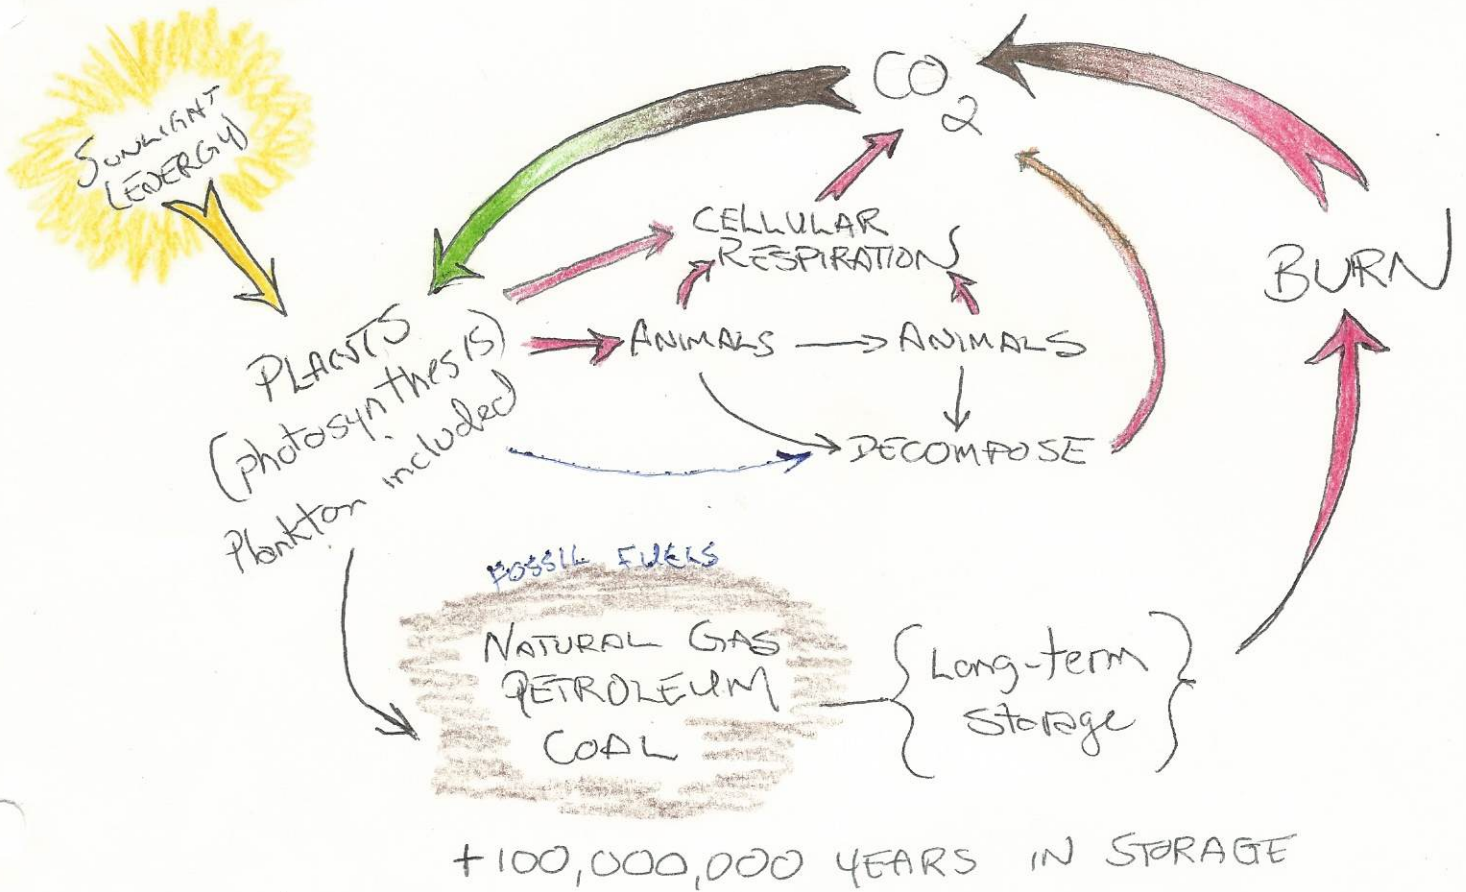 SUNLIGHT
(ENERGY)
CO2
CELLULAR
RESPIRATION
BURN
PLANTS
(photosynthesis)
Plankton included
ANIMALS
ANIMALS
DECOMPOSE
FOSSIL FUELS
NATURAL GAS
PETROLEUM
COAL
{Long-term
storage}
+100,000,000 YEARS IN STORAGE